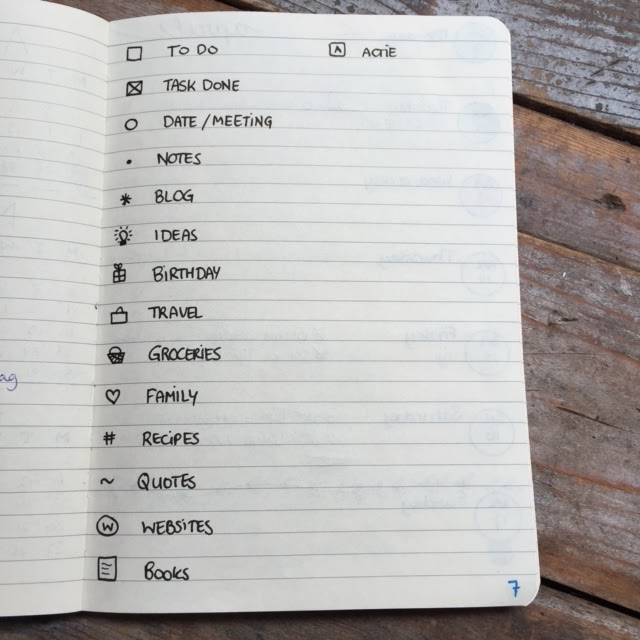 TO DO
A ACTIE
TASK DONE
DATE / MEETING
• NOTES
* BLOG
IDEAS
BIRTHDAY
TRAVEL
GROCERIES
♡ FAMILY
# RECIPES
~ QUOTES
W WEBSITES
BOOKS
ag
7